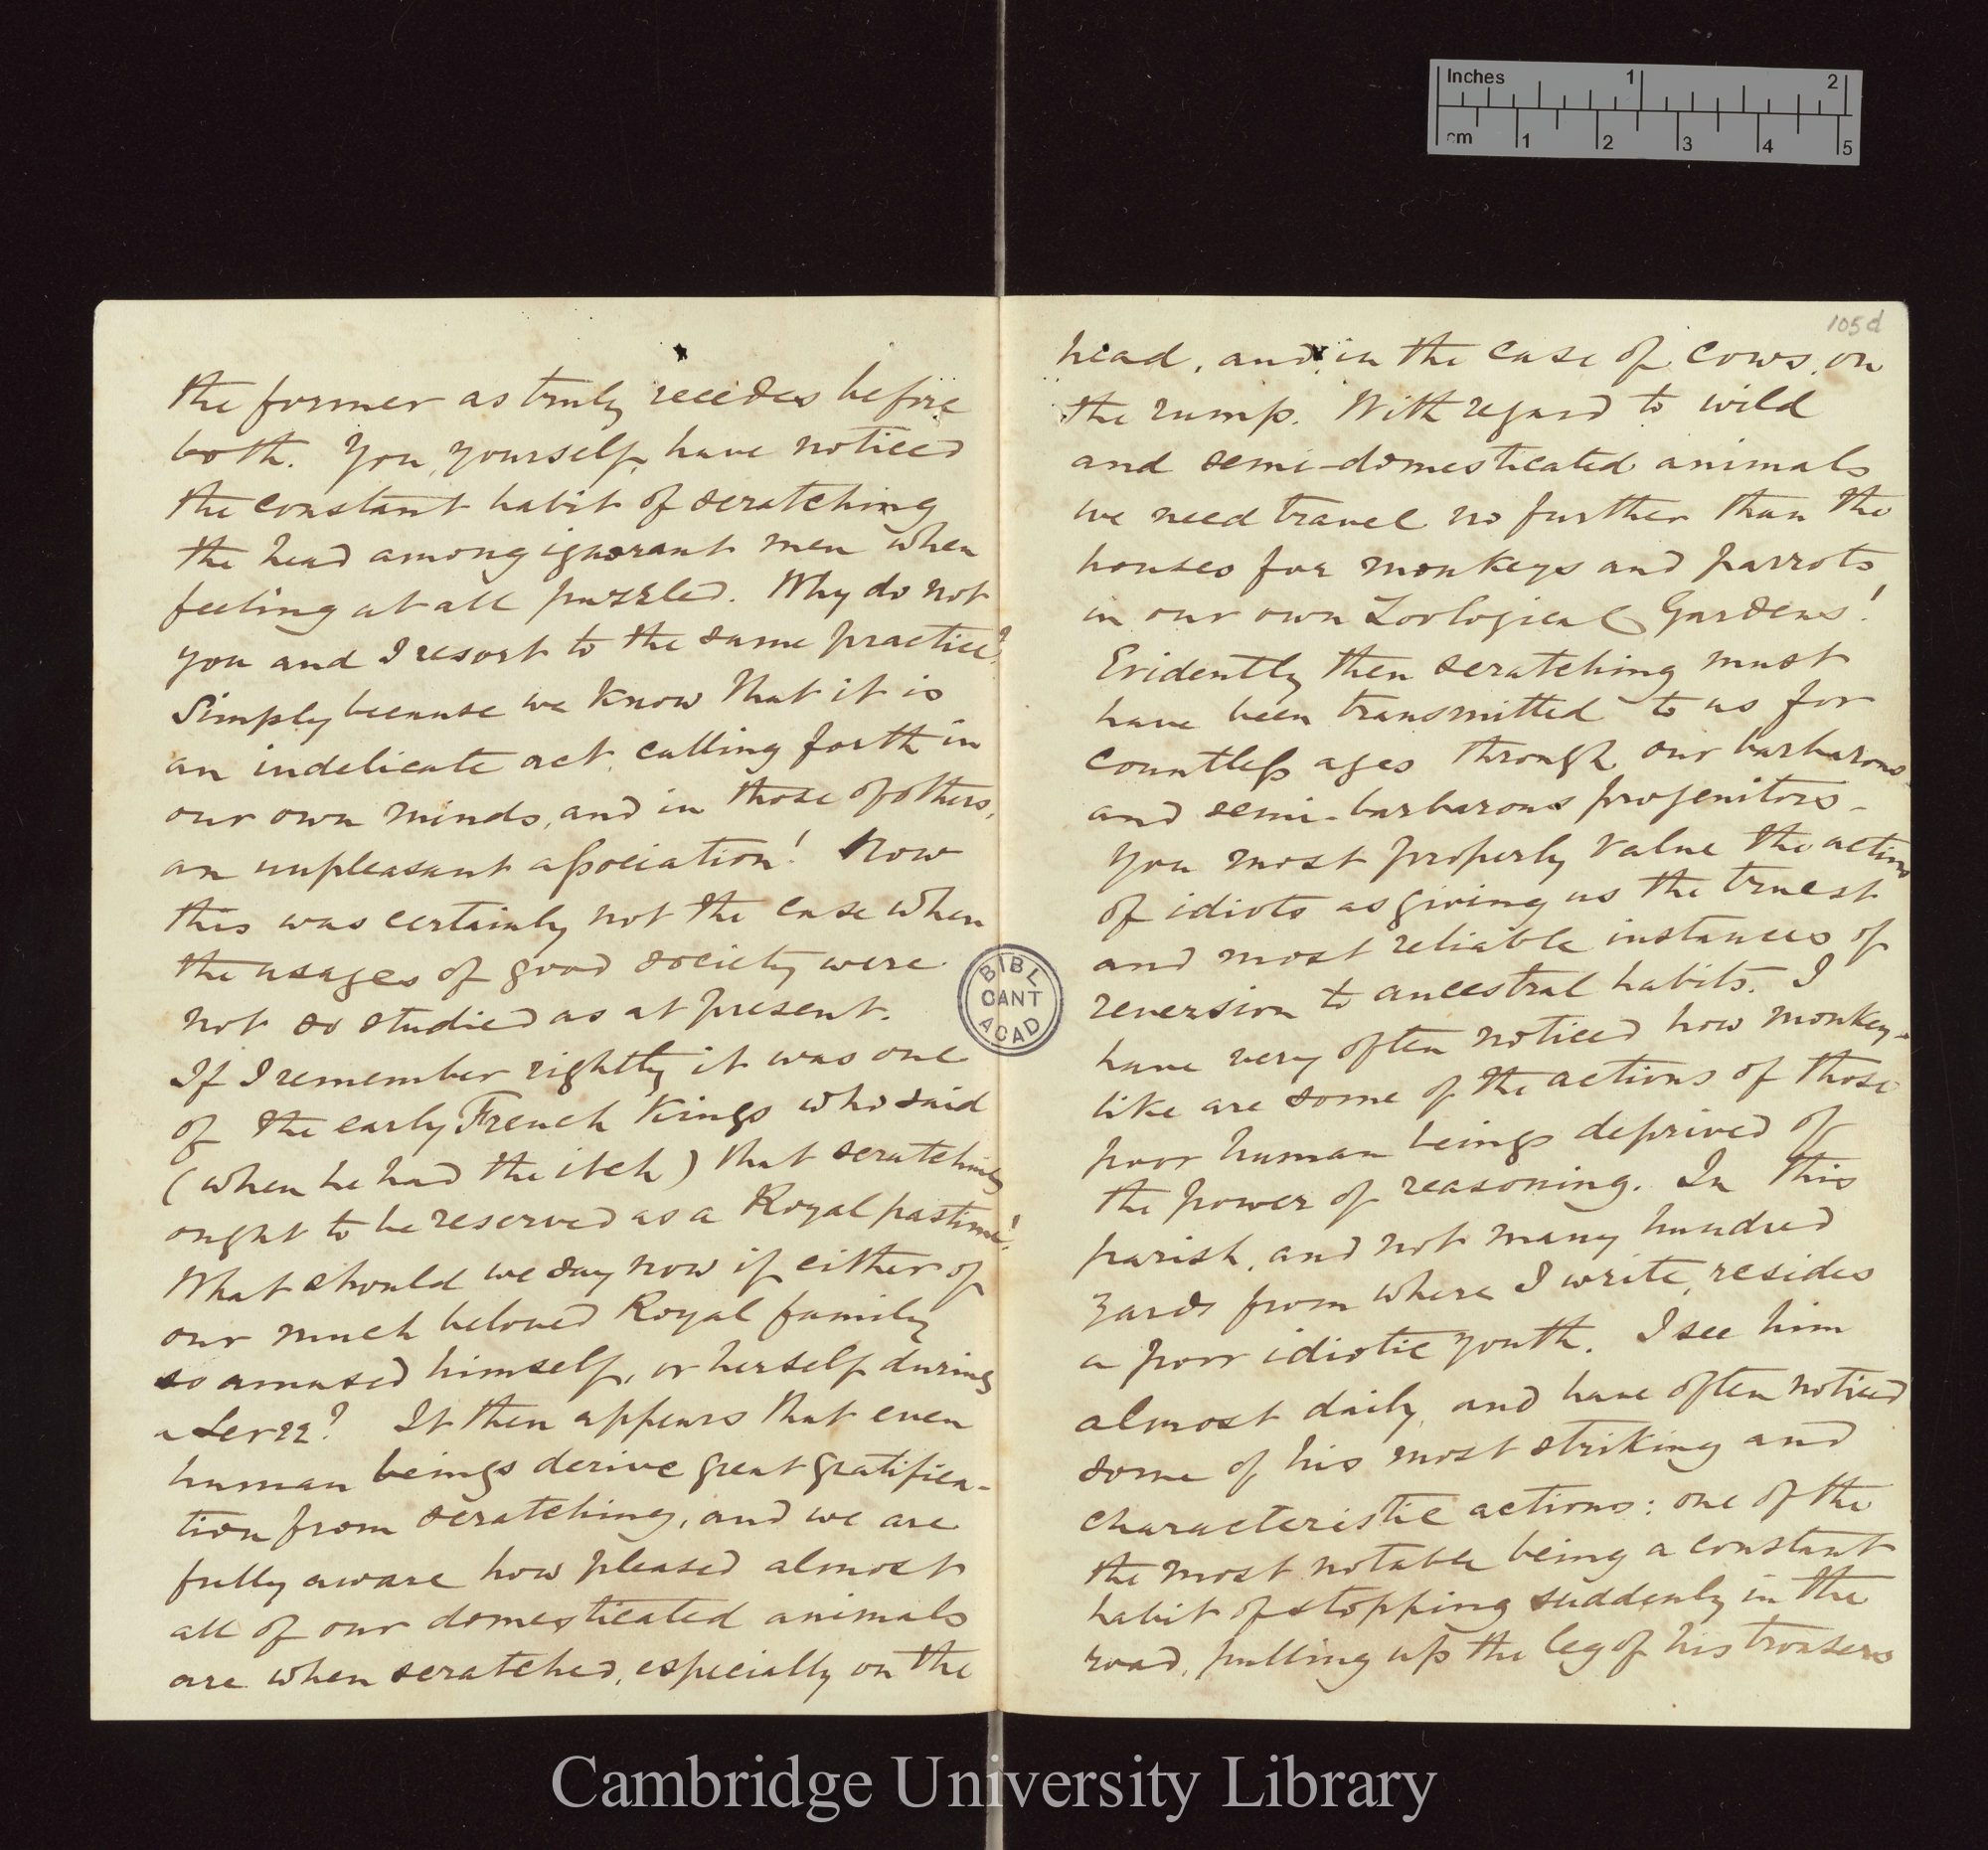 the former as truly recedes before
both. You, yourself, have noticed
the constant habit of scratching
the head among ignorant men when
feeling at all puzzled. Why do not
you and I resort to the same practice?
Simply because we know that it is
an indelicate act, calling forth in
our own minds, and in those of others,
an unpleasant association! Now
this was certainly not the case when
the usages of good society were
not so studied as at present.
If I remember rightly it was one
of the early French Kings who said
(when he had the itch) that scratching
ought to be reserved as a Royal pastime!
What should we say now if either of
our much beloved Royal family
so amused himself, or herself during
a Levee? It then appears that even
human beings derive great gratifica-
tion from scratching, and we are
fully aware how pleased almost
all of our domesticated animals
are when scratched, especially on the
105d
head, and, in the case of cows, on
the rump. With regard to wild
and semi-domesticated animals
we need travel no further than the
houses for monkeys and parrots
in our own Zoological Gardens!
Evidently then scratching must
have been transmitted to us for
countless ages through our barbarous
and semi-barbarous progenitors-
You most properly value the actions
of idiots as giving us the truest
and most reliable instances of
reversion to ancestral habits. I
have very often noticed how monkey-
like are some of the actions of those
poor human beings deprived of
the power of reasoning. In this
parish, and not many hundred
yards from where I write, resides
a poor idiotic youth. I see him
almost daily, and have often noticed
some of his most striking and
characteristic actions: one of the
the most notable being a constant
habit of stopping suddenly in the
road, pulling up the leg of his trousers
BIBL
CANT
ACAD
Inches 1 2
cm 1 2 3 4 5
Cambridge University Library